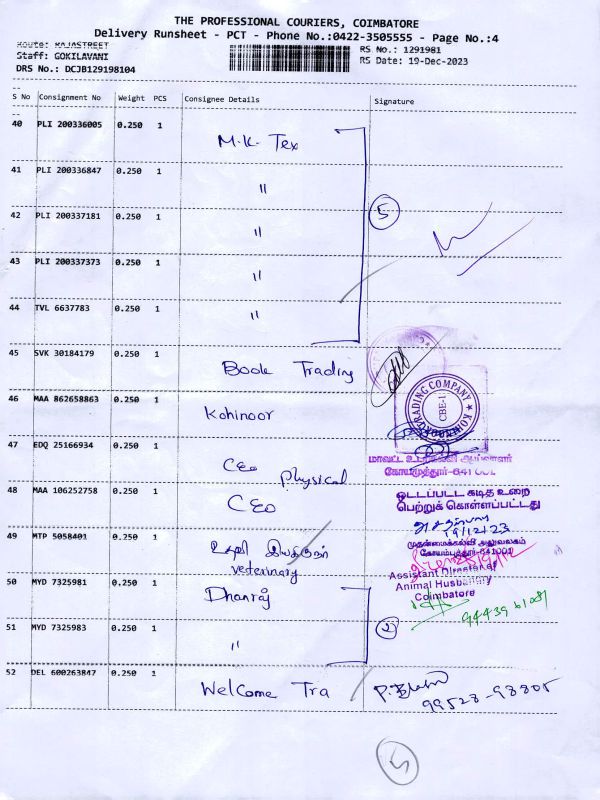 THE PROFESSIONAL COURIERS, COIMBATORE
Delivery Runsheet - PCT - Phone No.:0422-3505555 - Page No.:4
Route: RAJASTREET
Staff: GOKILAVANI
DRS No.: DCJB129198104
RS No.: 1291981
RS Date: 19-Dec-2023
S No Consignment No Weight PCS Consignee Details Signature
40 PLI 200336005 0.250 1 M.K. Tex
41 PLI 200336847 0.250 1 〃
5
42 PLI 200337181 0.250 1 〃
43 PLI 200337373 0.250 1 〃
44 TVL 6637783 0.250 1 〃
45 SVK 30184179 0.250 1 Book Trading
46 MAA 862658863 0.250 1 Kohinoor
TRADING COMPANY
CBE-1
47 EDQ 25166934 0.250 1 CEO Physical
கோயமுத்தூர்-641 001
48 MAA 106252758 0.250 1 CEO
ஒட்டப்பட்ட கடித உறை
பெற்றுக் கொள்ளப்பட்டது
19/12/23
49 MTP 5058401 0.250 1 உதவி இயக்குநர்
veterinary
முதன்மைக்கல்வி அலுவலகம்
கோயம்புத்தூர்-641001
50 MYD 7325981 0.250 1 Dhanraj
Assistant Director of
Animal Husbandry
Coimbatore
94439 61081
51 MYD 7325983 0.250 1 〃
2
52 DEL 600263847 0.250 1 Welcome Tra
99528-98805
5